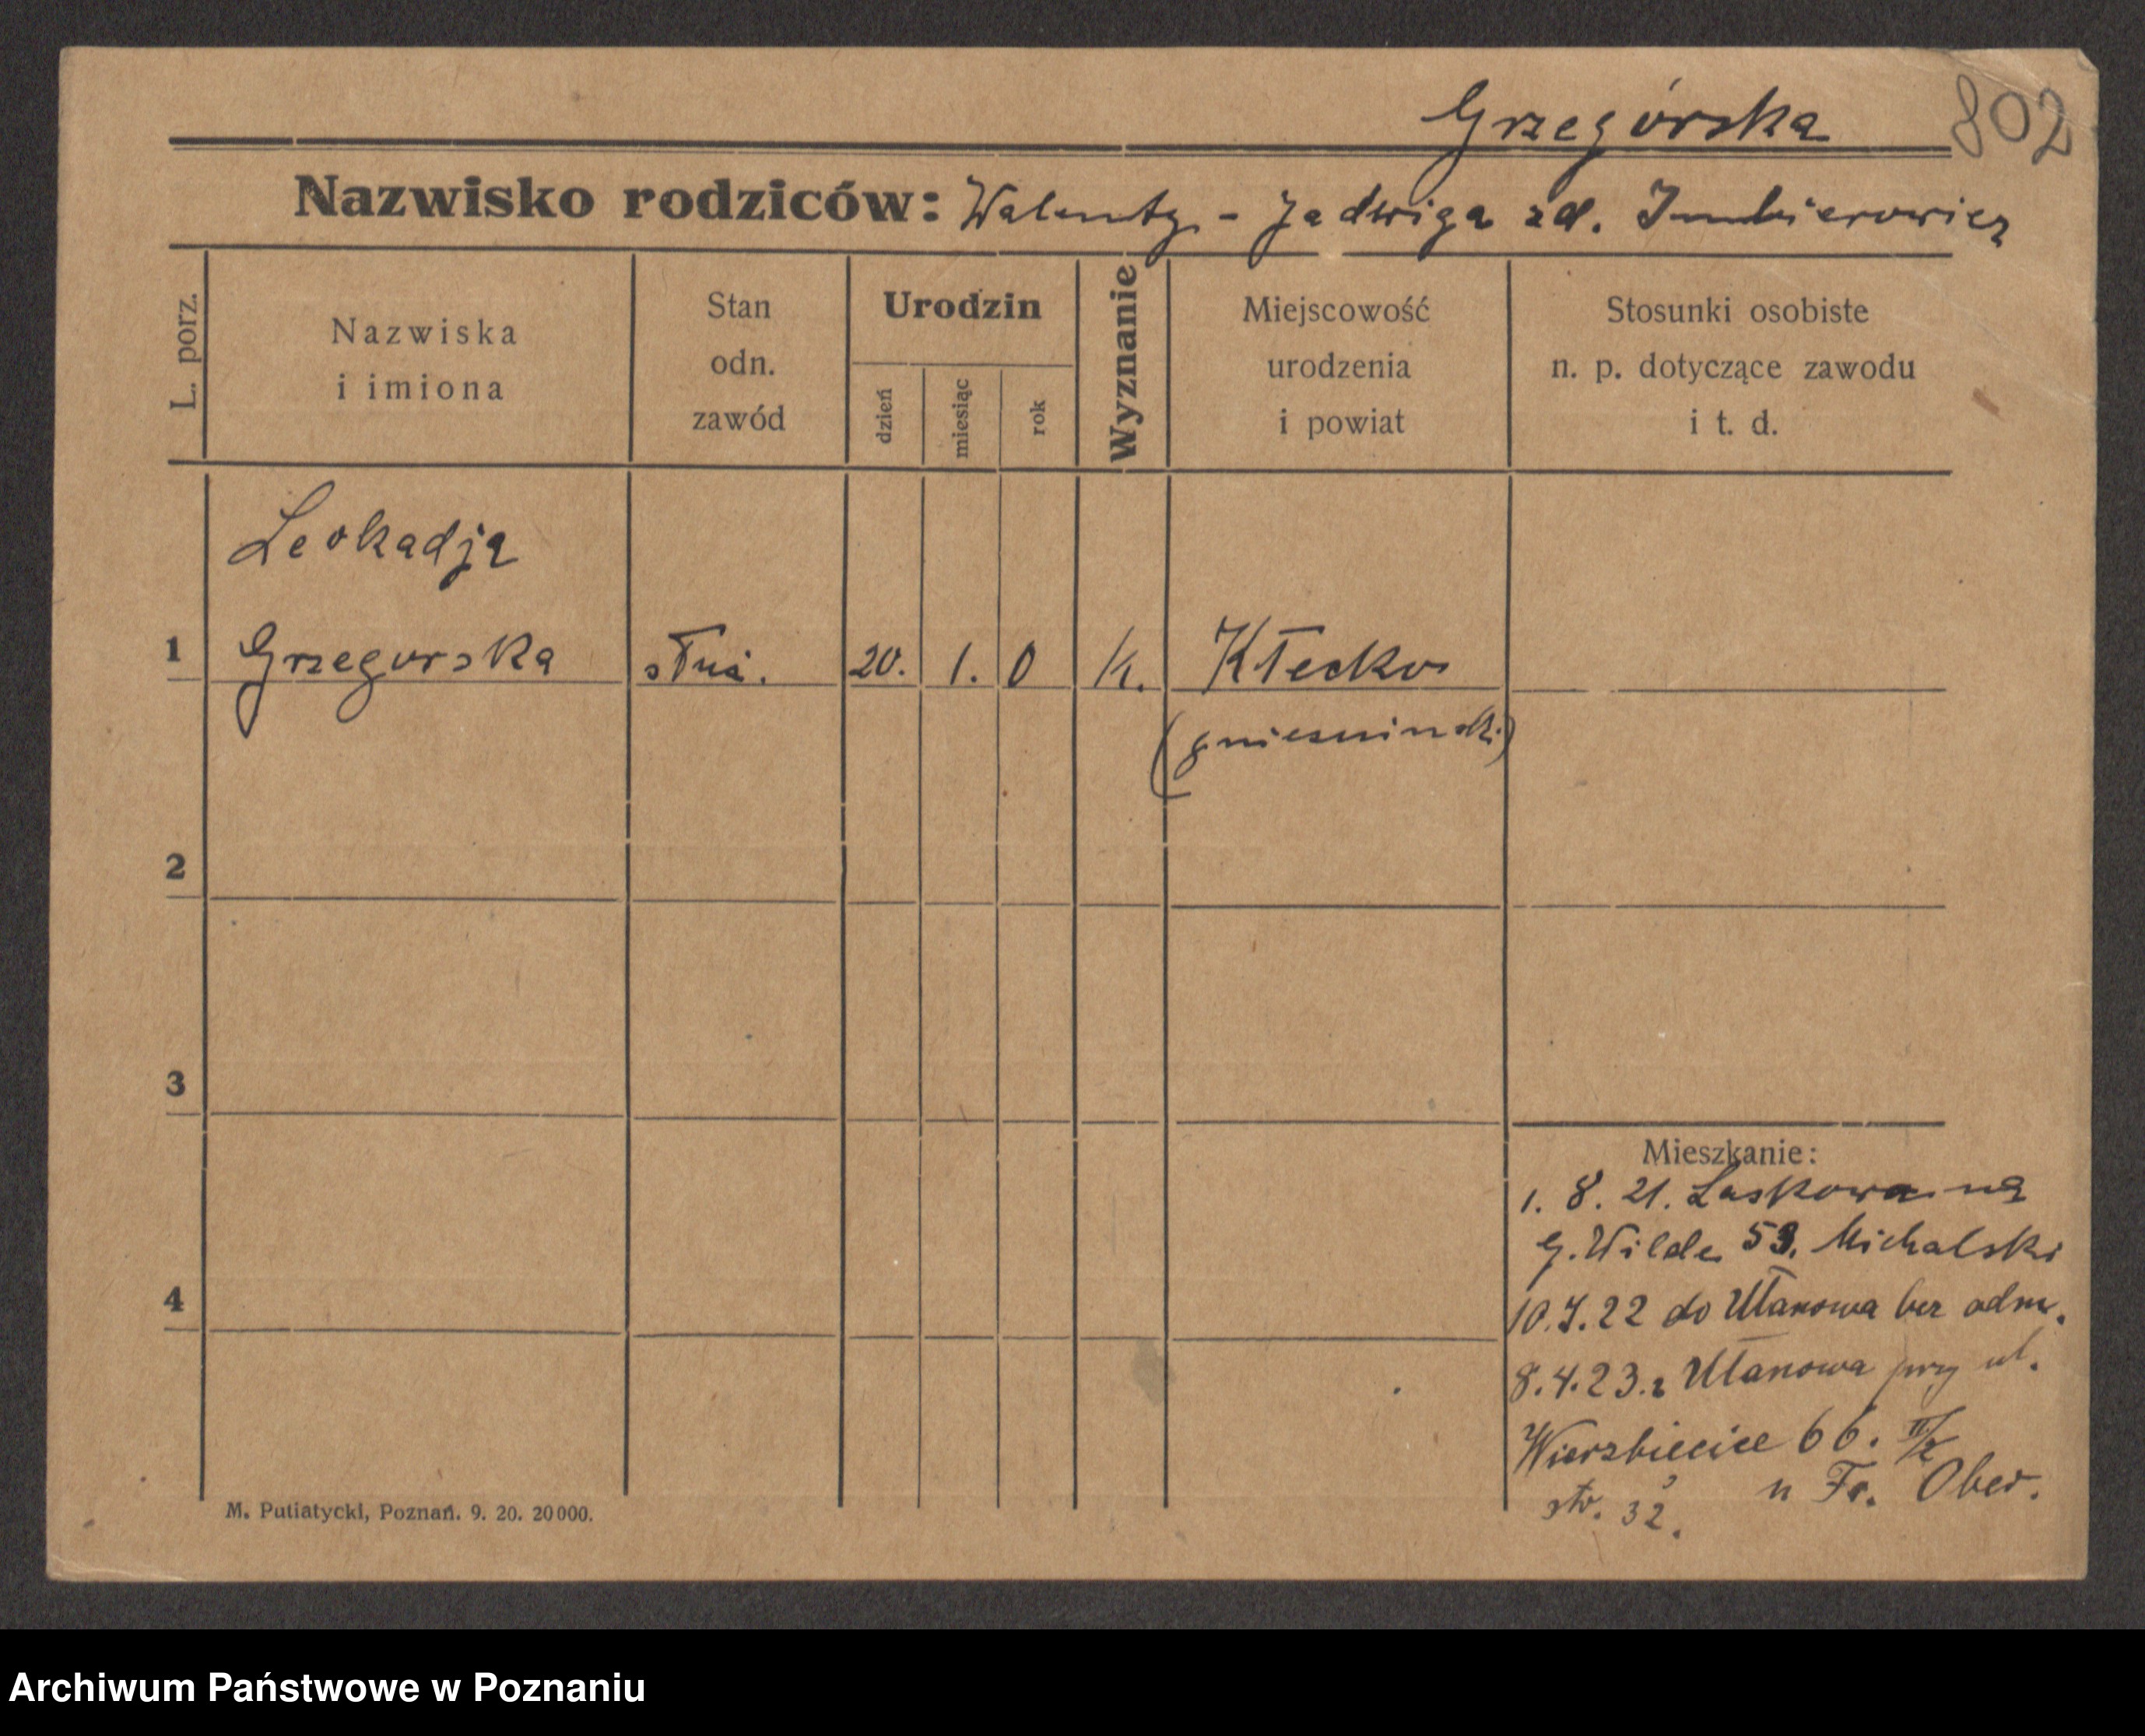 Grzegórska 802
Nazwisko rodziców: Walenty - Jadwiga zd. Imbierowicz
L. porz.
Nazwiska
i imiona
Stan
odn.
zawód
Urodzin
dzień
miesiąc
rok
Wyznanie
Miejscowość
urodzenia
i powiat
Stosunki osobiste
n. p. dotyczące zawodu
i t. d.
Leokadja
1 Grzegorska służ. 20. 1. 0 k. Kłecko
(gnieźnieński)
2
3
Mieszkanie:
1. 8. 21. Laskowa na
G. Wilde 53. Michalski
4
10.7.22 do Ułanowa bez odm.
8.4.23. z Ułanowa przy ul.
Wierzbięcice 66. II/2
u Fr. Ober.
str. 32.
M. Putiatycki, Poznań. 9. 20. 20000.
Archiwum Państwowe w Poznaniu